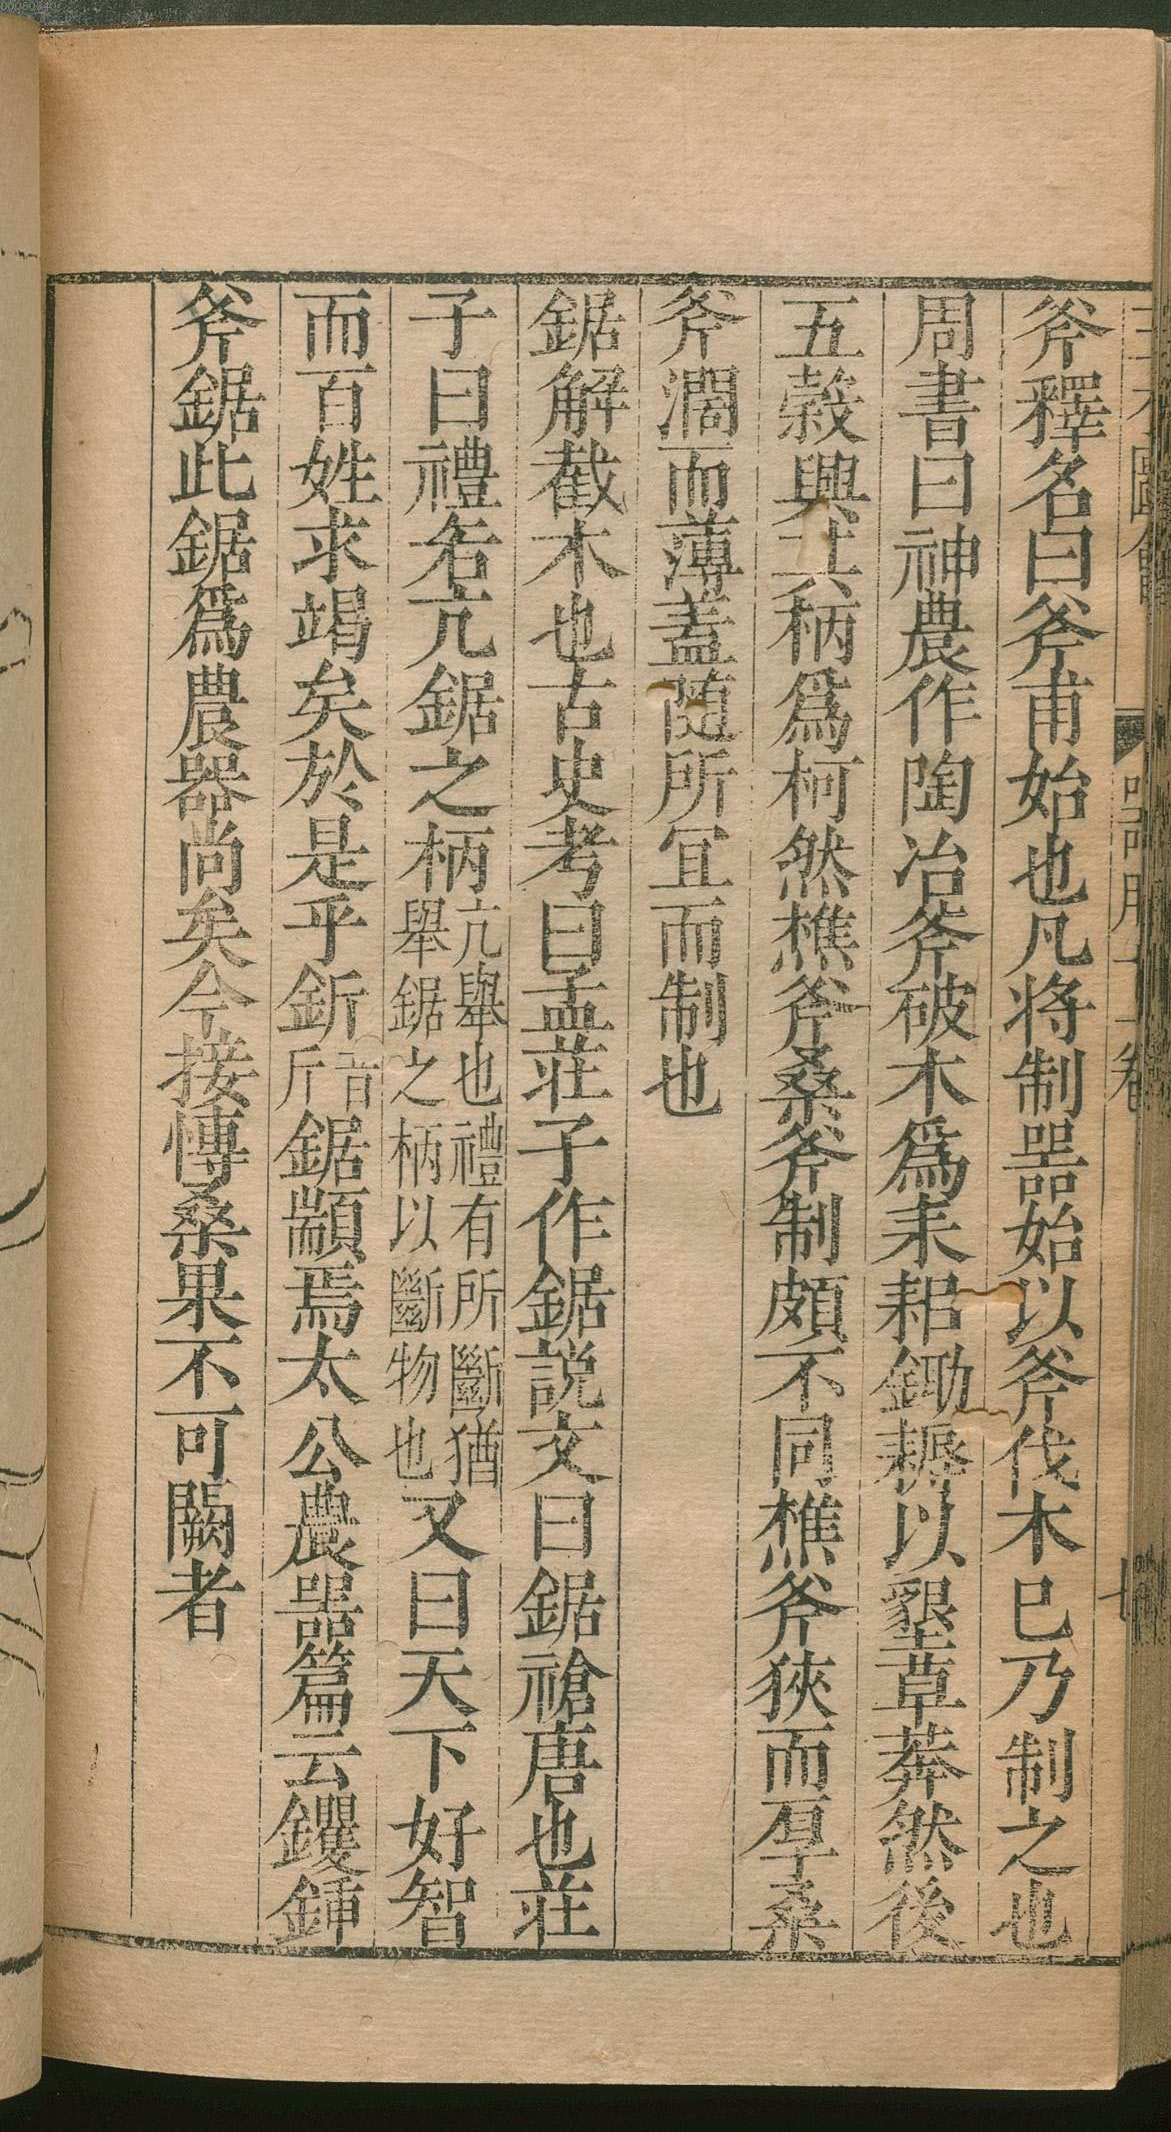 斧釋名曰斧甫始也凡將制噐始以斧伐木巳乃制之也
周書曰神農作陶冶斧破木爲耒耜鋤耨以墾草莽然後
五糓興其柄爲柯然樵斧桑斧制頗不同樵斧狹而厚桑
斧濶而薄蓋随所冝而制也
鋸解截木也古史考曰孟莊子作鋸説文曰鋸槍唐也莊
子曰禮若亢鋸之柄亢舉也禮有所斷猶舉鋸之柄以斷物也又曰天下好智
而百姓求竭矣於是乎釿音斤鋸顓焉太公農噐篇云钁鍤
斧鋸此鋸爲農器尚矣今接慱桑果不可闕者